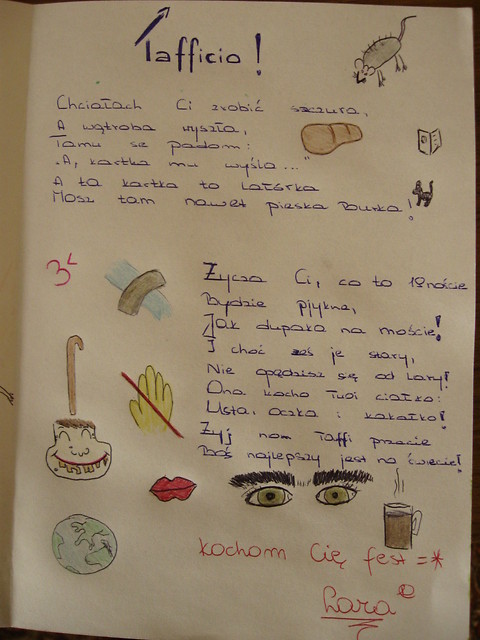 Tafficio!
Chciałach Ci zrobić szczura,
A wątroba wyszła,
Tamu se padom:
"A, kartka mu wyśla..."
A ta kartka to Latórka
Mosz tam nawet pieska Burka!
3L
Życza Ci, co to 18noście
Bydzie pjykne,
Jak dupaka na moście!
I choć żeś je stary,
Nie opędzisz się od Lary!
Ona kocho Twoi ciałko:
Usta, oczka i kakałko!
Żyj nom Taffi przacie
Boś najlepszy jest na świecie!
kochom Cię fest =*
Lara